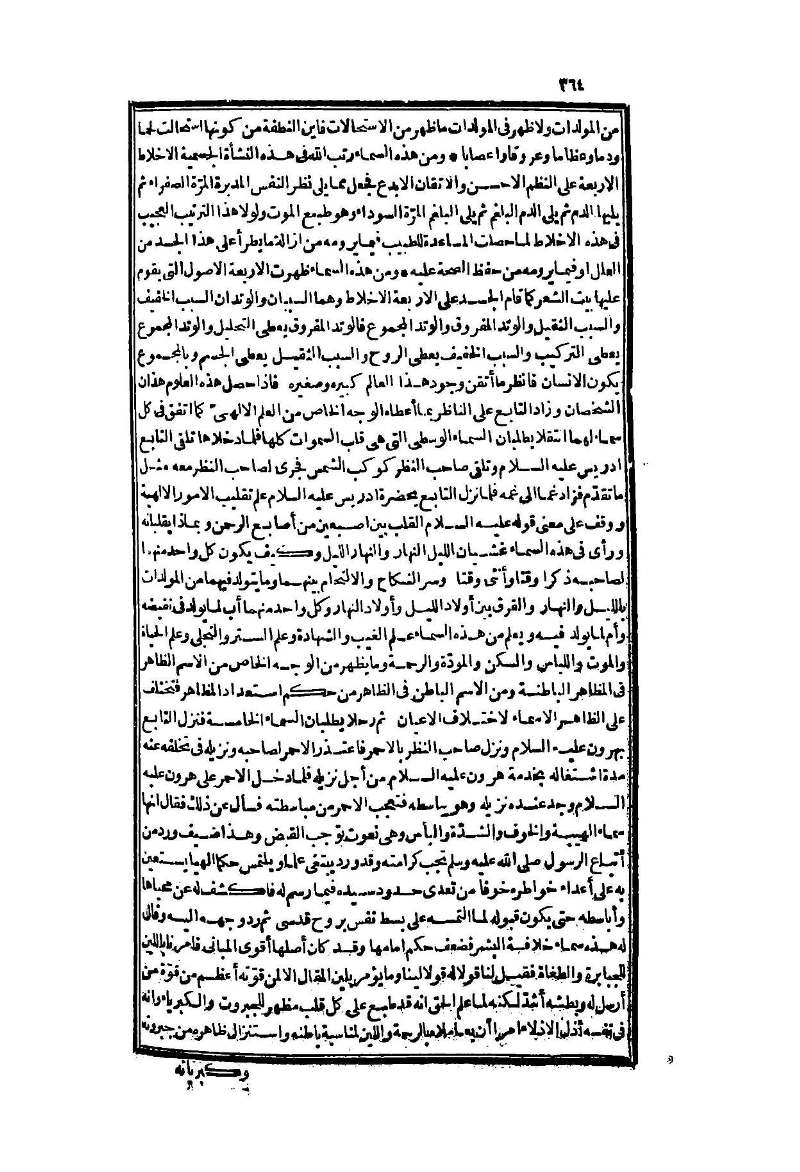 ٣٦٤
من المولدات ولا ظهر فى المولدات ما ظهر من الاستحالات فاين النطفة من كونها استحالت لحما
ودما وعظاما وعروقا واعصابا * ومن هذه السماء رتب الله فى هذه النشأة الجسمية الاخلاط
الاربعة على النظم الاحسن والاتقان الابدع فجعل مما يلى نظر النفس المدبرة المرّة الصفراء ثم
يليها الدم ثم يلى الدم البلغم ثم يلى البلغم المرّة السوداء وهو طبع الموت ولولا هذا الترتيب العجيب
فى هذه الاخلاط لما حصلت المساعدة للطبيب فيما يرومه من ازالة ما يطرأ على هذا الجسد من
العلل او فيما يرومه من حفظ الصحة عليه * ومن هذه السماء ظهرت الاربعة الاصول التى يقوم
عليها بيت الشعر كما قام الجسد على الاربعة الاخلاط وهما السببان والوتدان السبب الخفيف
والسبب الثقيل والوتد المفروق والوتد المجموع فالوتد المفروق يعطى التحليل والوتد المجموع
يعطى التركيب والسبب الخفيف يعطى الروح والسبب الثقيل يعطى الجسم وبالمجموع
يكون الانسان فانظر ما أتقن وجود هذا العالم كبيره وصغيره فاذا حصل هذه العلوم هذان
الشخصان وزاد التابع على الناظر بما أعطاه الوجه الخاص من العلم الالهىّ كما اتفق فى كل
سماء لهما انتقلا يطلبان السماء الوسطى التى هى قلب السموات كلها فلما دخلاها تلقى التابع
ادريس عليه السلام وتلقى صاحب النظر كوكب الشمس فجرى لصاحب النظر معه مثل
ما تقدّم فزاد غما الى غمه فلما نزل التابع بحضرة ادريس عليه السلام علم تقليب الامور الالهية
ووقف على معنى قوله عليه السلام القلب بين اصبعين من أصابع الرحمن وبماذا يقلبانه
ورأى فى هذه السماء غشيان الليل النهار والنهار الليل وكيف يكون كل واحد منهما
لصاحبه ذكرا وقتا وأنثى وقتا وسر النكاح والالتحام بينهما وما يتولد فيهما من المولدات
بالليل والنهار والفرق بين أولاد الليل وأولاد النهار وكل واحد منهما أب لما يولد فى نقيضه
وأم لما يولد فيه ويعلم من هذه السماء علم الغيب والشهادة وعلم الستر والتجلى وعلم الحياة
والموت واللباس والسكن والمودّة والرحمة وما يظهر من الوجه الخاص من الاسم الظاهر
فى المظاهر الباطنة ومن الاسم الباطن فى الظاهر من حكم استعداد المظاهر فتختلف
على الظاهر الاسماء لاختلاف الاعيان ثم رحلا يطلبان السماء الخامسة فنزل التابع
بهرون عليه السلام ونزل صاحب النظر بالاحمر فاعتذر الاحمر لصاحبه ونزيله فى تخلفه عنه
مدة اشتغاله بخدمة هرون عليه السلام من أجل نزيله فلما دخل الاحمر على هرون عليه
السلام وجد عنده نزيله وهو يباسطه فتعجب الاحمر من مباسطته فسأل عن ذلك فقال انها
سماء الهيبة والخوف والشدّة والبأس وهى نعوت توجب القبض وهذا ضيف ورد من
أتباع الرسول صلى الله عليه وسلم تجب كرامته وقد ورد يبتغى علما ويلتمس حكما الهيا يستعين
به على أعداء خواطره خوفا من تعدى حدود سيده فيما رسم له فاكشف له عن محياها
وأباسطه حتى يكون قبوله لما التمسه على بسط نفس بروح قدسى ثم ردّ وجهه اليه وقال
له هذه سماء خلافة البشر فضعف حكم امامها وقد كان أصلها أقوى المبانى فامر نا باللين
للجبابرة والطغاة فقيل لنا قولا له قولا لينا وما يؤمر بلين المقال الا من قوّته أعظم من قوّة من
أرسل له وبطشه أشدّ لكنه لما علم الحق انه قد طبع على كل قلب مظهر للجبروت والكبرياء وانه
فى نفسه أذل الاذلاء امرا أن يعاملاه بالرحمة واللين لمناسبة باطنه واستنزال ظاهره من جبروته
وكبريائه